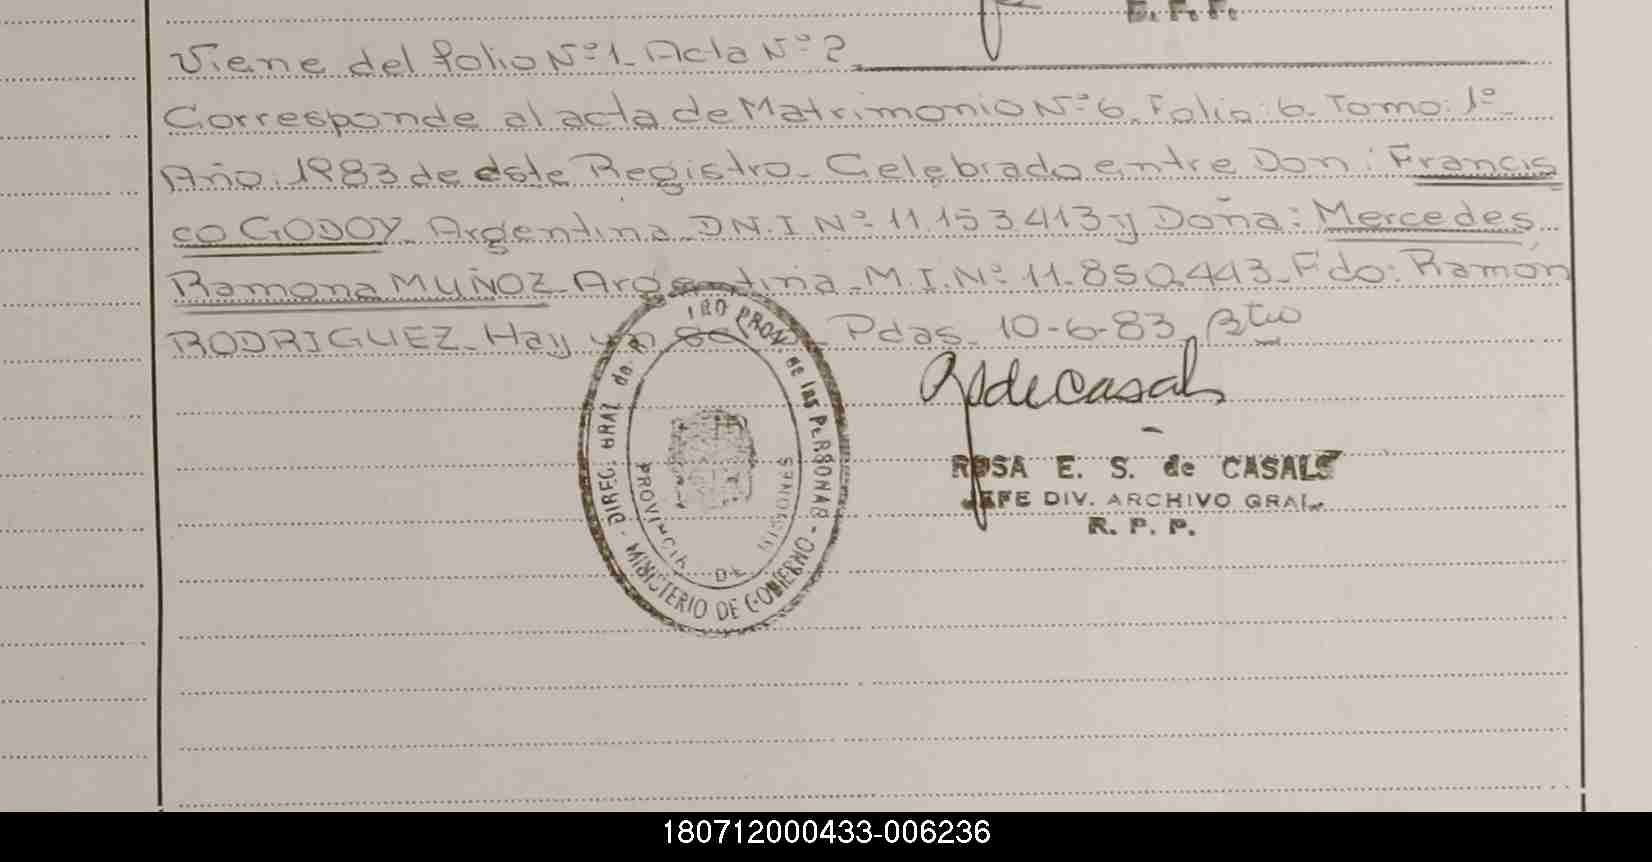 R. P. P.
Viene del folio Nº 1_ Acta Nº 2
Corresponde al acta de Matrimonio Nº 6. Folio: 6. Tomo: 1º
Año: 1983 de este Registro_ Celebrado entre Don: Francis
co GODOY_ Argentina_ DN.I Nº 11.153413 y Doña: Mercedes
Ramona MUÑOZ_ Argentina_ M.I.Nº 11.850.443_ Fdo: Ramón
RODRIGUEZ_ Hay un Pdas_ 10-6-83
DIREC. GRAL de las PERSONAS - MINISTERIO DE GOBIERNO -
PROVINCIA DE MISIONES
ROSA E. S. de CASALS
JEFE DIV. ARCHIVO GRAL.
R. P. P.
180712000433-006236